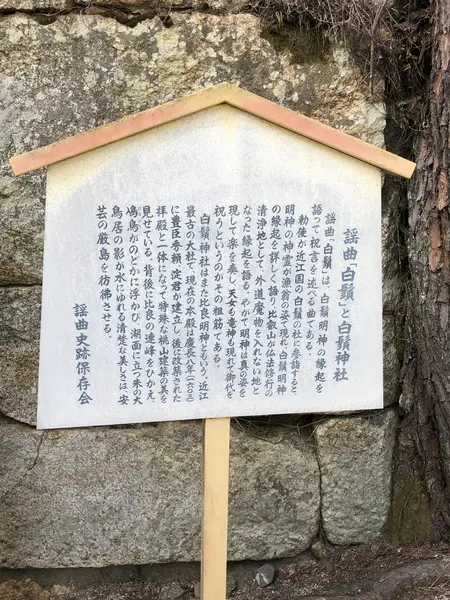 謡曲「白鬚」と白鬚神社
謡曲「白鬚」は、白鬚明神の縁起を
語って祝言を述べる曲である。
勅使が近江国の白鬚の社に参詣すると、
明神の神霊が漁翁の姿で現れ、白鬚明神
の縁起を詳しく語り、比叡山が仏法修行の
清浄地として、外道魔物を入れない地と
なった縁起を語る。やがて明神は真の姿を
現して楽を奏し、天女も竜神も現れて御代を
祝うというのがその粗筋である。
白鬚神社はまた比良明神ともいう。近江
最古の大社で、現在の本殿は慶長八年(一六〇三)
に豊臣秀頼、淀君が建立し、後に改築された
拝殿と一体になって特殊な桃山建築の美を
見せている。背後に比良の連峰をひかえ、
鳰鳥がのどかに浮かび、湖面に立つ朱の大
鳥居の影が水にゆれる清楚な美しさは、安
芸の厳島を彷彿させる。
謡曲史跡保存会